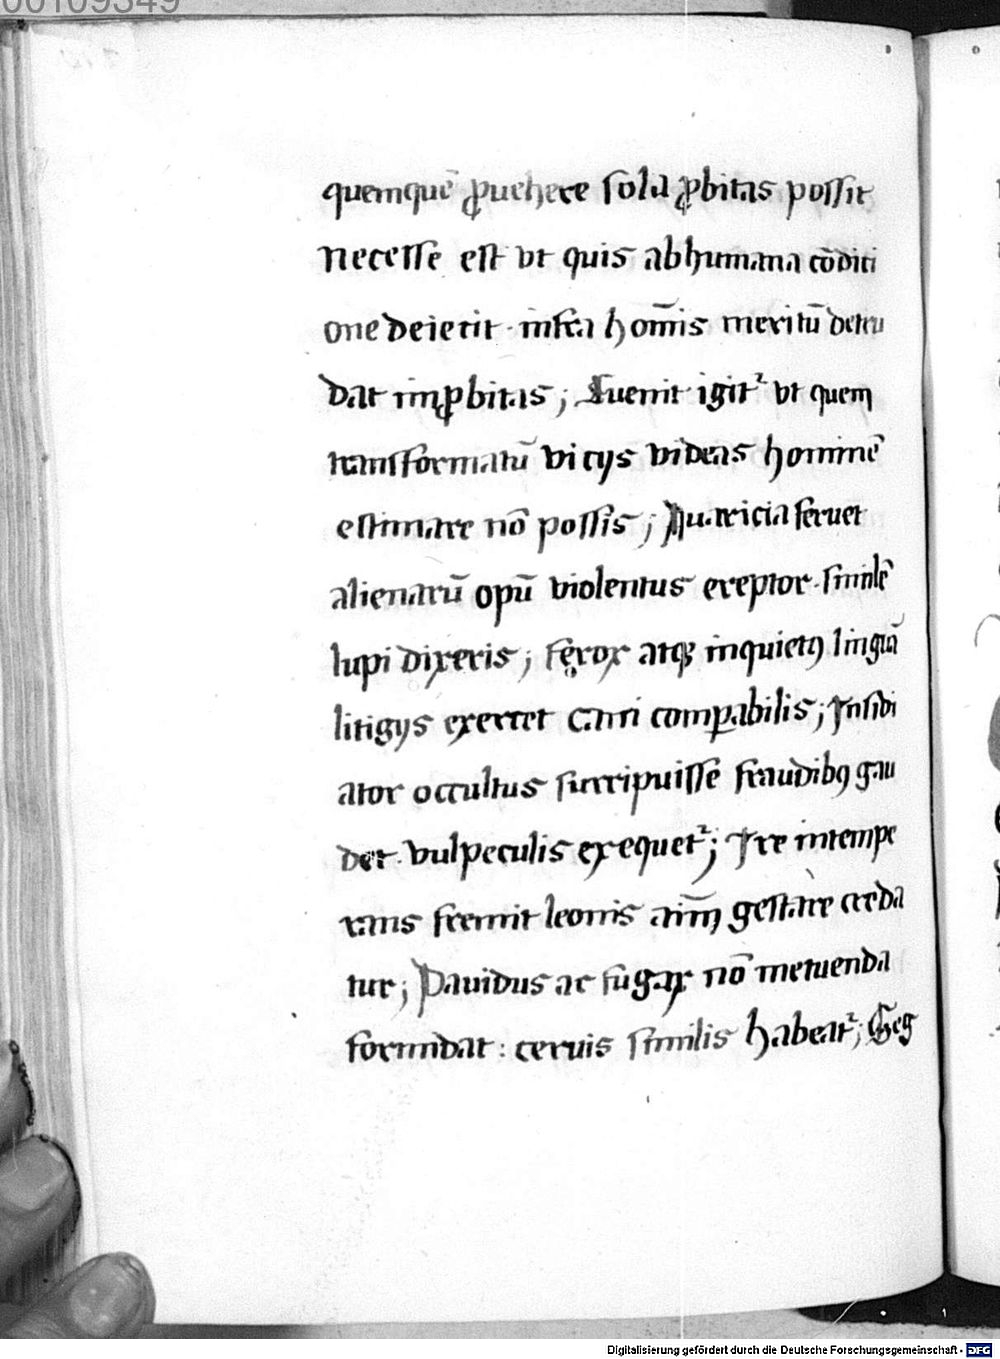 00109349
quemquē ꝓuehere sola ꝓbitas possit
necesse est vt quis ab humana cōditi
one deiecit · infra hoīm̄is meritū detru
dat imꝓbitas ; Euenit igit᷑ vt quem
transformatū vicijs videas hominē
estimare nō possis ; Auaricia feruet
alienarū opū violentus ereptor · similē
lupi dixeris ; ferox atqꝫ inquietꝯ linguā
litigijs exercet cani comꝑabilis ; Insidi
ator occultus surripuisse fraudibꝯ gau
det · vulpeculis exequet᷑ ; Ire intempe
rans fremit leonis aīm̄ gestare creda
tur ; Pauidus ac fugax nō metuenda
formidat : ceruis similis habeat᷑ ; Seg
Digitalisierung gefördert durch die Deutsche Forschungsgemeinschaft - DFG